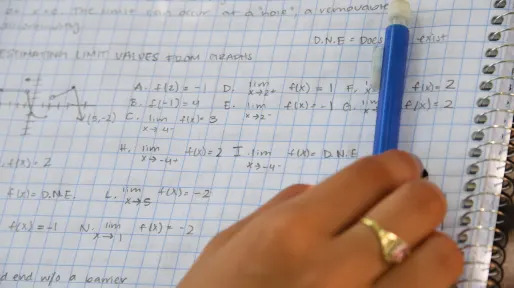 The limit can occur at a "hole", a removable
discontinuity.
D.N.E = Does exist
ESTIMATING LIMIT VALUES FROM GRAPHS
A. f(2) = -1 D. lim x→2+ f(x) = 1 F. f(x) = 2
B. f(-1) = 4 E. lim x→2- f(x) = -1 G. lim f(x) = 2
(5,-2) C. lim x→4- f(x) = 3
H. lim x→-4+ f(x) = 2 I. lim x→-4- f(x) = D.N.E
f(x) = 2
f(x) = D.N.E. L. lim x→5 f(x) = -2
f(x) = -1 N. lim x→1 f(x) = -2
end w/o a barrier